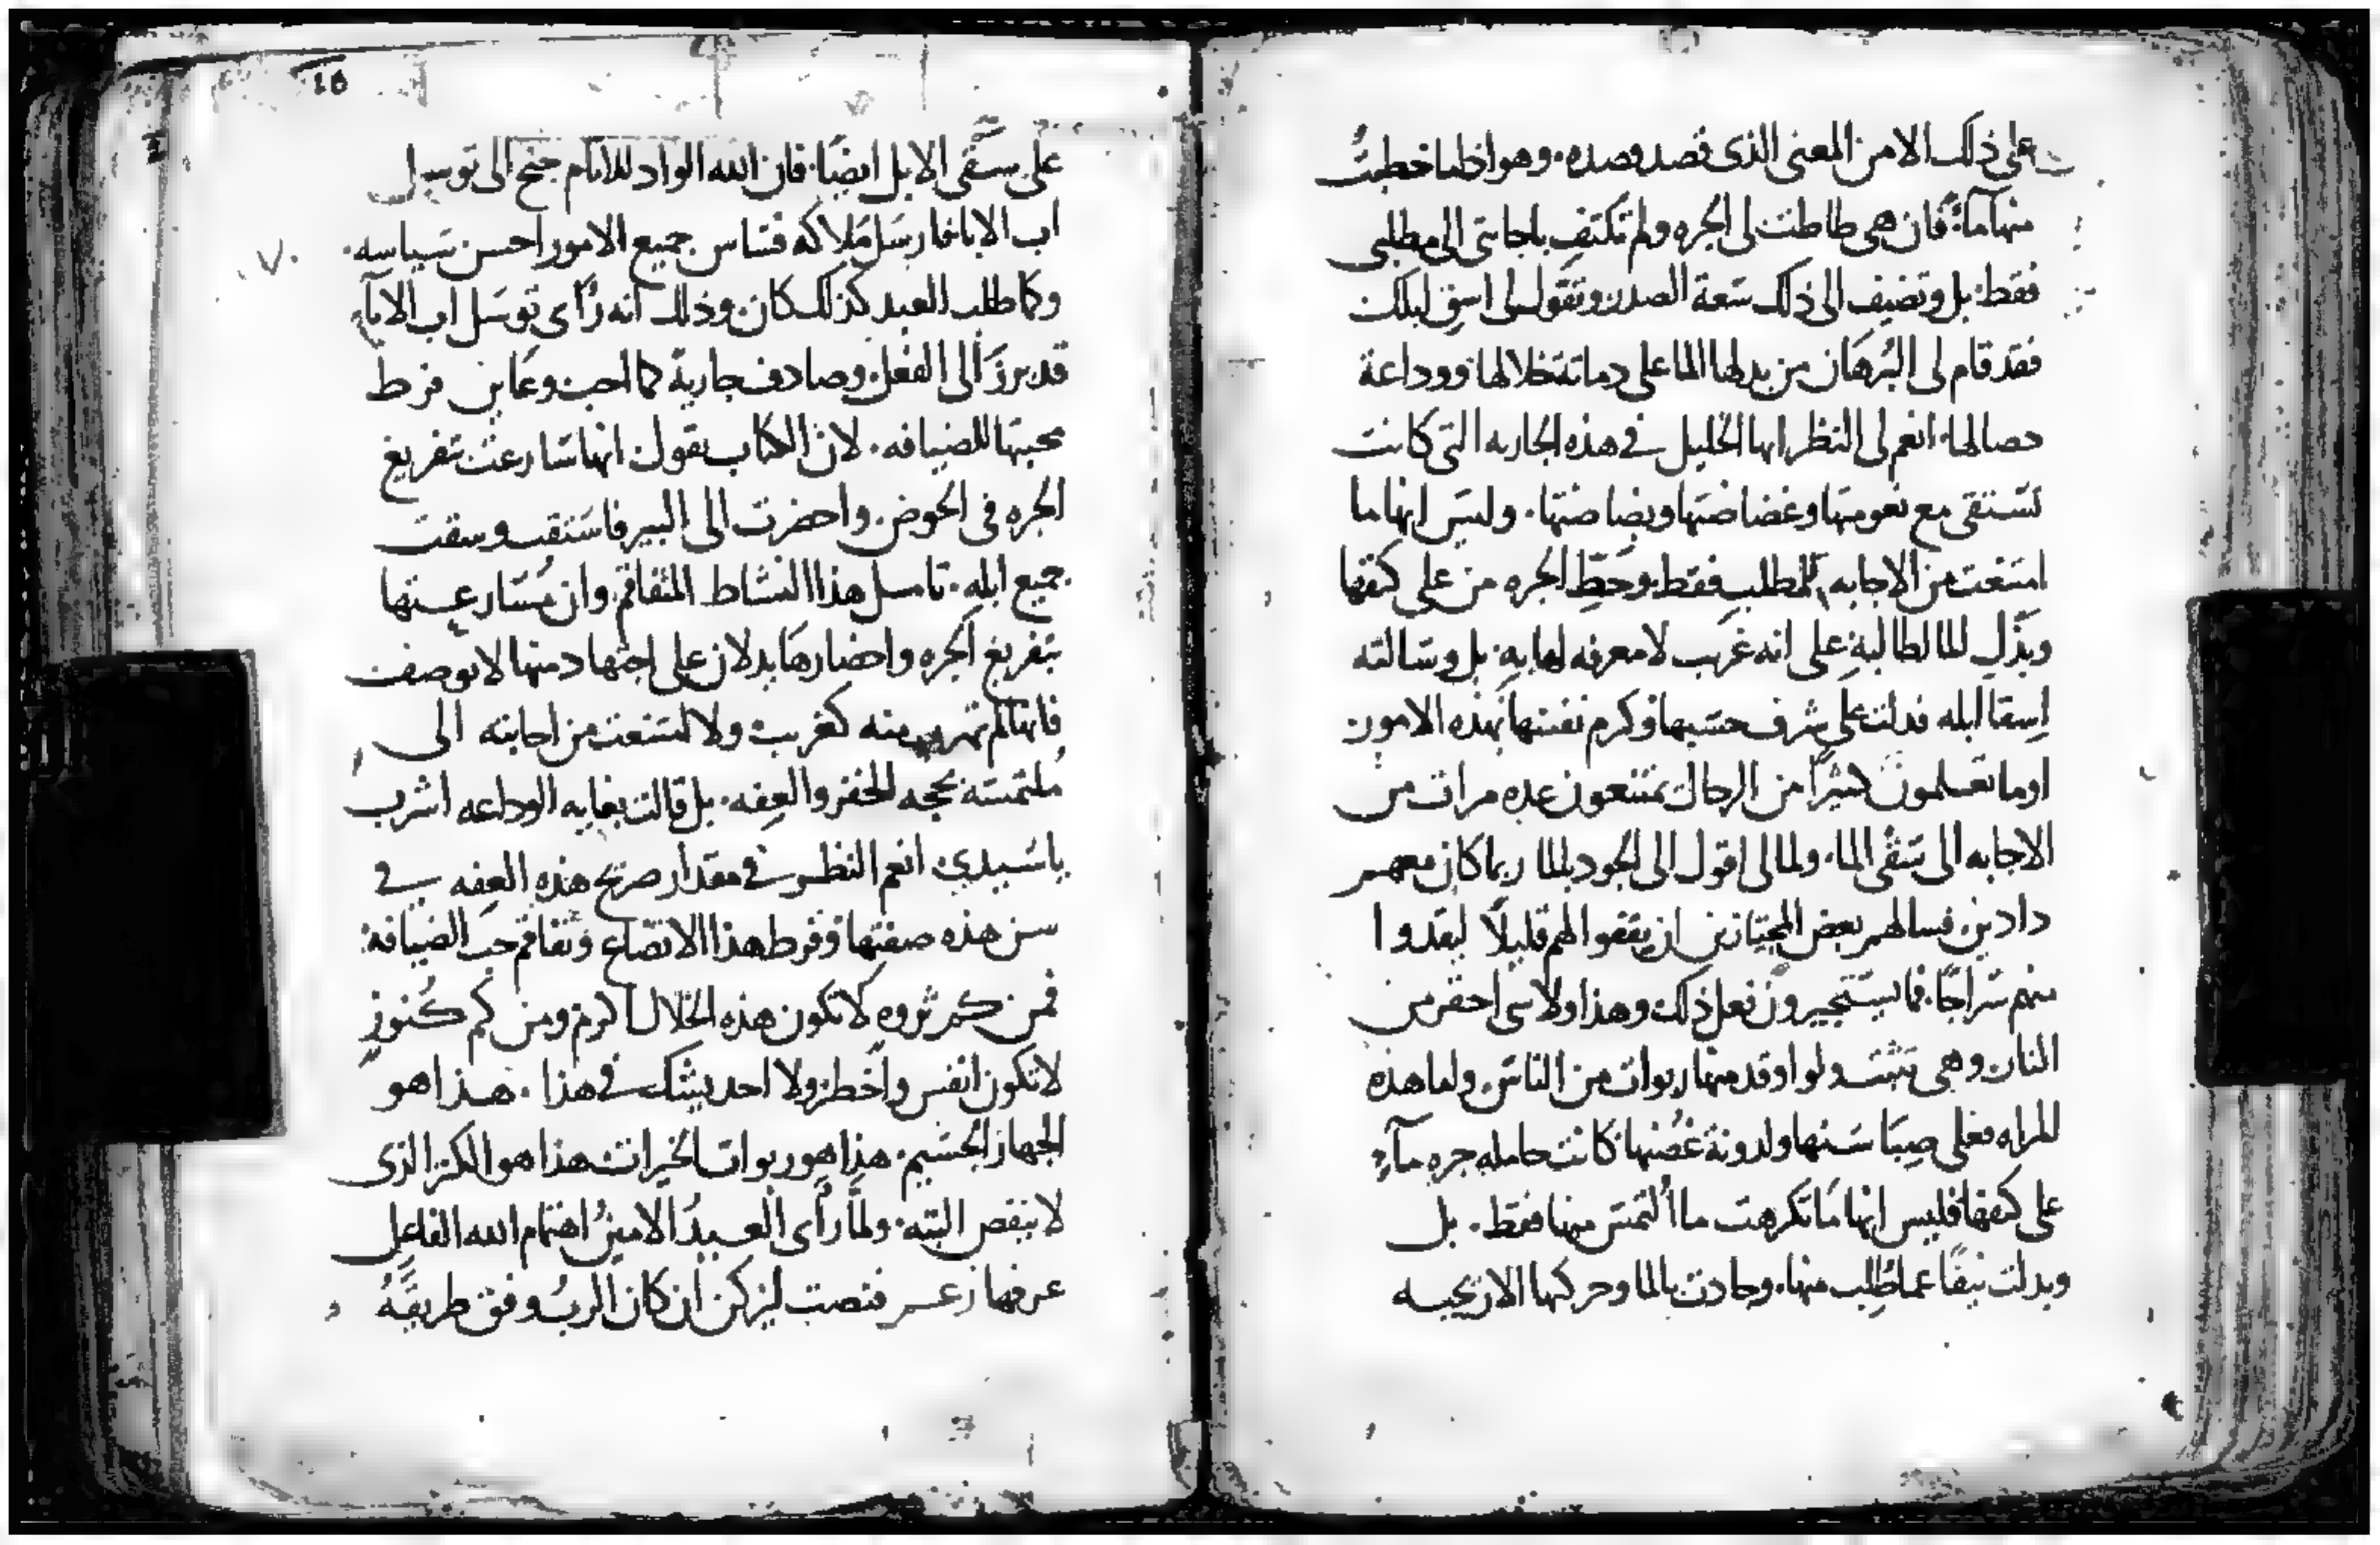 على ذلك الامن المعنى الذى قصد قصده. وهو اذا ما خطبتُ
منها مآءً فان هى طاطت لى الجره ولم تكتفِ باجابتى الى مطلبى
فقط. بل وتضيف الى ذلك سَعة الصدر وتقول لى اسقِ ابلك
فقد قام لى البُرهَان من بدلها الما على دماتة خلالها ووداعة
خصالها. انعم لى النظر ايها الخليل فى هذه الجاريه التى كانت
تسَتقى مع نعومتها وغضاضتها وبضاضتها. وليسَ انها ما
امتنعت من الاجابه للمطلب فقط بوحَطِّ الجره من على كتفها
وبذلِ الما لطالبهِ على انه غريب لا معرفه لها بهِ. بل وسَالته
اِسقا ابله فدلت على شرف حسَبها وكرم نفسَها بهذه الامور.
اوما تعلمون كثيرًا من الرجال يمتنعون عده مرات من
الاجابه الى سَقْى الما. ولما لى اقول الى الجود بالما ربما كان معهم
دادين. فسالهم بعض المجتازين ان يقفوا لهم قليلًا ليقدوا
منهم سَراجًا. فما يستَجيرون فعل ذلك وهذا ولا شى احقر من
النار. وهى تثبت ولو اوقد منها ربوات من الناسَ. ولما هذه
المراه فعلى صِبَا سَنها ولدونة غصنها كانت حامله جره مآءٍ
على كتفها فليس انها مَا تكرهت ما اُلتمسَ منها فقط. بل
وبدلت نيفًا عما طُلِب منها. وجادت بالما وحركها الاريحيه
16
على سَقى الابل ايضًا. فان الله الواد للانام جنح الى توسل
اب الابا فارسَل مَلاكه فسَاس جميع الامور احسن سَياسه.
وكما طلب العبد كذلك كان. وذلك انه رَاى توسَل اب الابآءِ
قد برزَ الى الفعل. وصادف جارية كما احب وعَاين فرط
محبتها للضيافه. لان الكتاب يقول انها سَارعت بتفريغ
الجره فى الحوض. واحضرت الى البير فاسَتقت وسقت
جميع ابلهِ. تامل هذا النشاط المتفاقم. وان مُسَارعتها
بتفريغ الجره واحضارهَا يدلان على اجتهاد منها لا يوصف
فانها لم تهرب منه كغريب ولا امتنعت من اجابته الى
مُلتمسَه بحجه الخفر والعِفه. بل قالت بغايه الوداعه اشرب
ياسَيدي. انعم النظر فى مقدار صريح هذه العفه فى
سن هذه صفتها وفرط هذا الاتضاع وتفاقم حب الضيافة.
فمن كم ثروهٍ لا تكون هذه الخلال اكرم ومن كم كُنوزٍ
لا تكون انفس واخطر. ولا احد يشك فى هذا. هذا هو
الجهاز الجسَيم. هذا هو ربوات الخيرات هذا هو الكنز الذى
لا ينقص البته. ولمَّا رأى العبدُ الامينُ اهتمام الله الفاعِل
عرفها زعم فنصت ليزكن ان كان الربُ وفق طريقَهُ